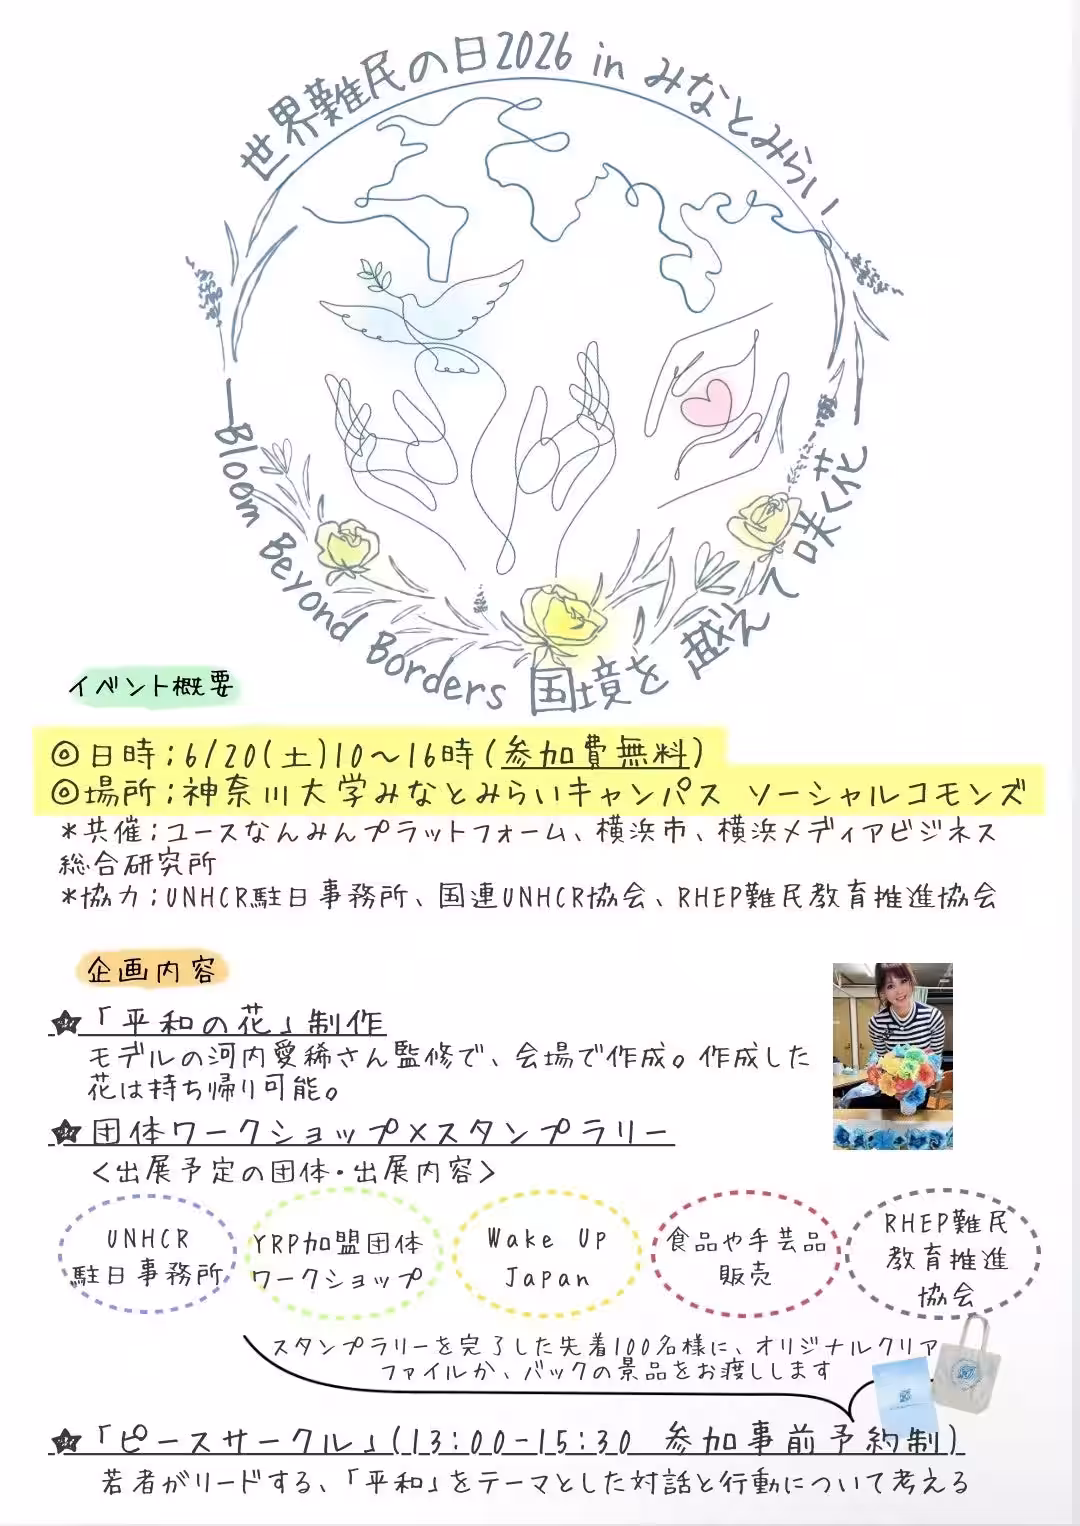 世界難民の日2026 in みなとみらい
Bloom Beyond Borders 国境を越えて咲く花
イベント概要
◎日時:6/20(土)10～16時(参加費無料)
◎場所:神奈川大学みなとみらいキャンパス ソーシャルコモンズ
*共催:ユースなんみんプラットフォーム、横浜市、横浜メディアビジネス
総合研究所
*協力:UNHCR駐日事務所、国連UNHCR協会、RHEP難民教育推進協会
企画内容
★「平和の花」制作
モデルの河内愛稀さん監修で、会場で作成。作成した
花は持ち帰り可能。
★団体ワークショップ×スタンプラリー
<出展予定の団体・出展内容>
UNHCR
駐日事務所
YRP加盟団体
ワークショップ
Wake Up
Japan
食品や手芸品
販売
RHEP難民
教育推進
協会
スタンプラリーを完了した先着100名様に、オリジナルクリア
ファイルか、バックの景品をお渡しします
★「ピースサークル」(13:00-15:30 参加事前予約制)
若者がリードする、「平和」をテーマとした対話と行動について考える